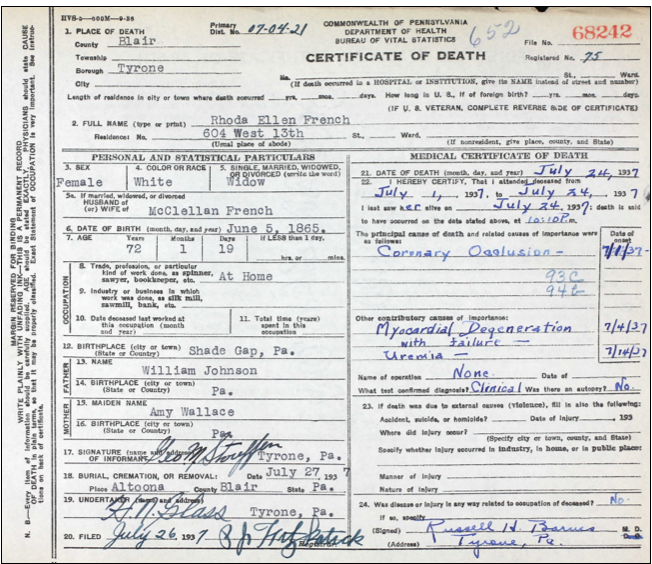 HVS-5—500M—9-36
COMMONWEALTH OF PENNSYLVANIA
DEPARTMENT OF HEALTH
BUREAU OF VITAL STATISTICS
652
Primary Dist. No. 07-04-21
File No. 68242
CERTIFICATE OF DEATH
Registered No. 75
1. PLACE OF DEATH
County Blair
Township
Borough Tyrone
City
No. St., Ward.
(If death occurred in a HOSPITAL or INSTITUTION, give its NAME instead of street and number)
Length of residence in city or town where death occurred yrs. mos. days. How long in U. S., if of foreign birth? yrs. mos. days.
(IF U. S. VETERAN, COMPLETE REVERSE SIDE OF CERTIFICATE)
2. FULL NAME (type or print) Rhoda Ellen French
Residence: No. 604 West 13th St., Ward.
(Usual place of abode) (If nonresident, give place, county, and State)
PERSONAL AND STATISTICAL PARTICULARS
3. SEX Female
4. COLOR OR RACE White
5. SINGLE, MARRIED, WIDOWED, OR DIVORCED (write the word) Widow
5a. If married, widowed, or divorced
HUSBAND of
(or) WIFE of McClellan French
6. DATE OF BIRTH (month, day, and year) June 5, 1865.
7. AGE Years Months Days If LESS than 1 day,
72 1 19 hrs. or mins.
OCCUPATION
8. Trade, profession, or particular
kind of work done, as spinner,
sawyer, bookkeeper, etc. At Home
9. Industry or business in which
work was done, as silk mill,
sawmill, bank, etc.
10. Date deceased last worked at
this occupation (month
and year)
11. Total time (years)
spent in this
occupation
12. BIRTHPLACE (city or town)
(State or Country) Shade Gap, Pa.
FATHER
13. NAME
William Johnson
14. BIRTHPLACE (city or town)
(State or Country) Pa.
MOTHER
15. MAIDEN NAME
Amy Wallace
16. BIRTHPLACE (city or town)
(State or Country) Pa.
17. SIGNATURE (name and address)
OF INFORMANT Geo M Stouffer Tyrone, Pa.
18. BURIAL, CREMATION, OR REMOVAL: Date July 27 1937
Place Altoona County Blair State Pa.
19. UNDERTAKER (name and address)
H. N. Glass Tyrone, Pa.
20. FILED July 26, 1937
Registrar
MEDICAL CERTIFICATE OF DEATH
21. DATE OF DEATH (month, day, and year) July 24, 1937
22. I HEREBY CERTIFY, That I attended deceased from
July 1, 1937, to July 24, 1937
I last saw her alive on July 24, 1937; death is said
to have occurred on the date stated above, at 10:10P.m.
The principal cause of death and related causes of importance were
as follows:
Date of onset
Coronary Occlusion — 7/1/37-
93C
94b
Other contributory causes of importance:
Myocardial Degeneration 7/4/37
with failure —
Uremia — 7/14/37
Name of operation None. Date of
What test confirmed diagnosis? Clinical Was there an autopsy? No.
23. If death was due to external causes (violence), fill in also the following:
Accident, suicide, or homicide? Date of injury 193
Where did injury occur?
(Specify city or town, county, and State)
Specify whether injury occurred in industry, in home, or in public place:
Manner of injury
Nature of injury
24. Was disease or injury in any way related to occupation of deceased? No.
If so, specify
(Signed) Russell H. Barnes M. D.
(Address) Tyrone, Pa.
MARGIN RESERVED FOR BINDING
WRITE PLAINLY WITH UNFADING INK—THIS IS A PERMANENT RECORD
N. B.—Every item of information should be carefully supplied. AGE should be stated EXACTLY. PHYSICIANS should state CAUSE
OF DEATH in plain terms, so that it may be properly classified. Exact Statement of OCCUPATION is very important. See instruc-
tions on back of certificate.